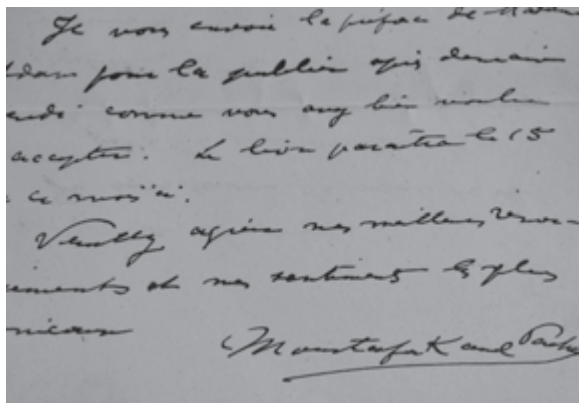 Je vous envoie la préface de
pour la publier après demain
comme vous avez bien voulu
accepter. Le livre paraîtra le 15
ce mois ci.
Veuillez agréer mes meilleurs remer-
ciments et mes sentiments les plus

Moustafa Kamel Pacha